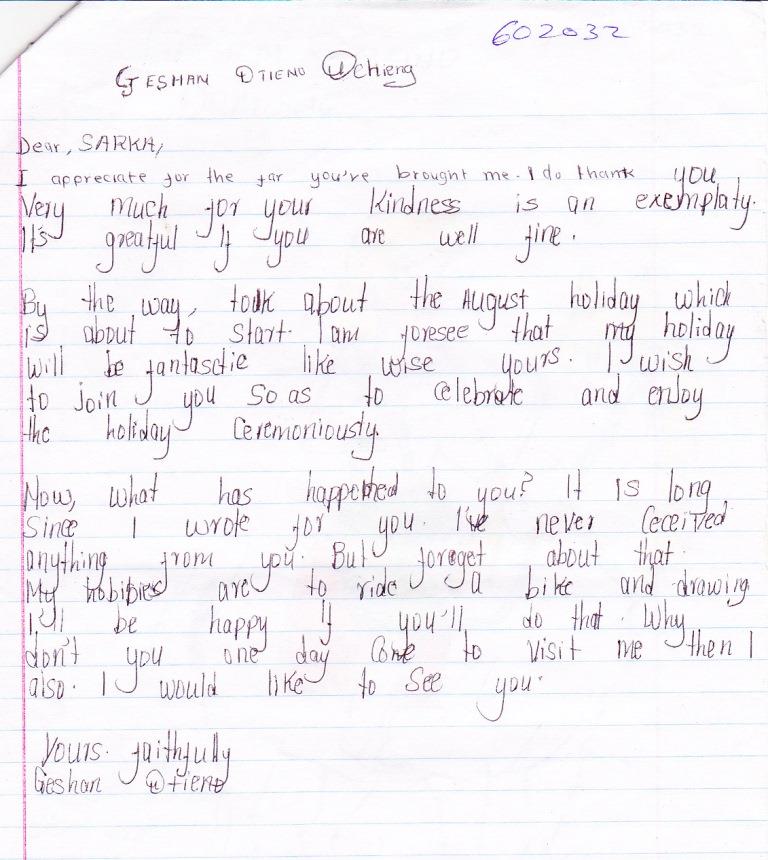 602032
GESHAN OTIENO Ochieng
Dear, SARKA,
I appreciate for the far you've brought me. I do thank you
Very much for your kindness is an exemplaty.
It's greatful if you are well fine.
By the way, touk about the August holiday which
is about to start. I am foresee that my holiday
will be fantasctie like wise yours. I wish
to join you so as to celebrate and enjoy
the holiday ceremoniously.
Now, what has happened to you? It is long
Since I wrote for you. I've never received
anything from you. But foreget about that.
My hobibies are to ride a bike and drawing
I'll be happy if you'll do that. Why
don't you one day come to visit me then I
also. I would like to see you.
Yours. faithfully
Geshan Otieno